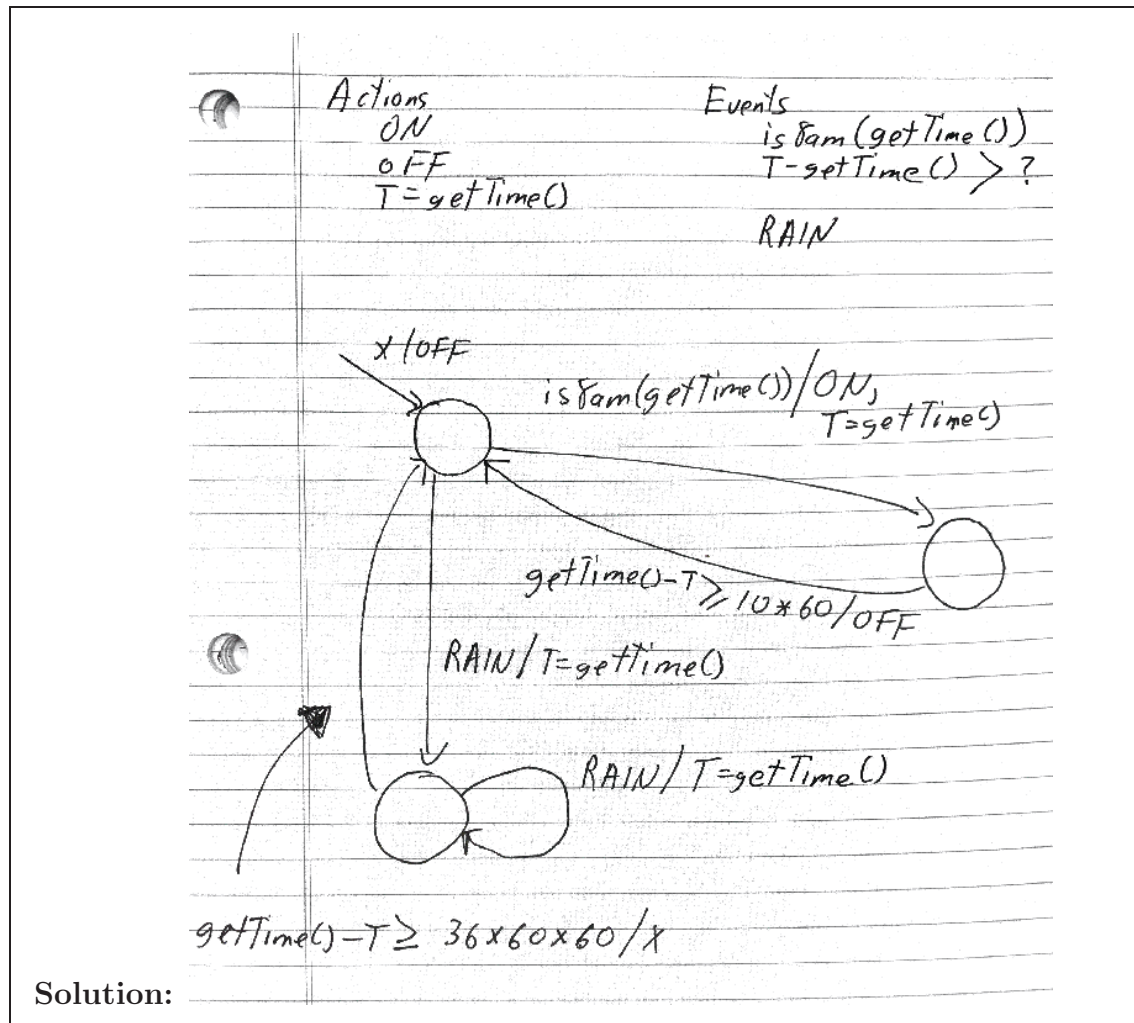 Actions
ON
OFF
T=getTime()
Events
is8am(getTime())
T-getTime() > ?
RAIN
X/OFF
is8am(getTime())/ON,
T=getTime()
getTime()-T ≥ 10*60/OFF
RAIN/T=getTime()
RAIN/T=getTime()
getTime()-T ≥ 36x60x60/X
Solution: